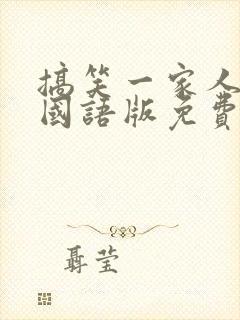 搞笑一家人
國語版免費
聶莹